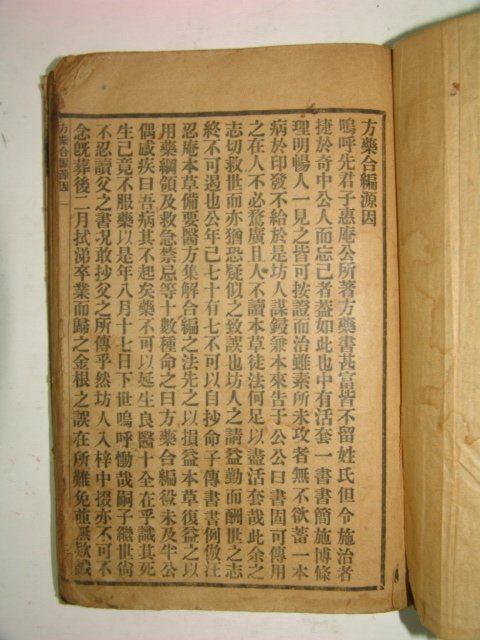 方藥合編源因
嗚呼先君子惠庵公所著方藥書甚富皆不留姓氏但令施治者
捷於奇中公人而忘己者蓋如此也中有活套一書書簡施博條
理明暢人一見之皆可按證而治雖素所未攻者無不欲蓄一本
病於印發不給於是坊人謀鋟兼本來告于公公曰書固可傳用
之在人不必騖廣且人不讀本草徒法何足以盡活套哉此余之
志切救世而亦猶恐疑似之致誤也坊人之請益勤而酬世之志
終不可遏也公年己七十有七不可以自抄命子傳書書例倣汪
忍庵本草備要醫方集解合編之法先之以損益本草復益之以
用藥綱領及救急禁忌等十數種命之曰方藥合編役未及半公
偶感疾曰吾病其不起矣藥不可以延生良醫十全在乎識其死
生己竟不服藥以是年八月十七日下世嗚呼慟哉嗣子繼世尙
不忍讀父之書況敢抄父之所傳乎然坊人入梓中掇亦不可不
念旣葬後二月拭涕卒業而歸之金根之誤在所難免並無欵識
方藥合編源因 一